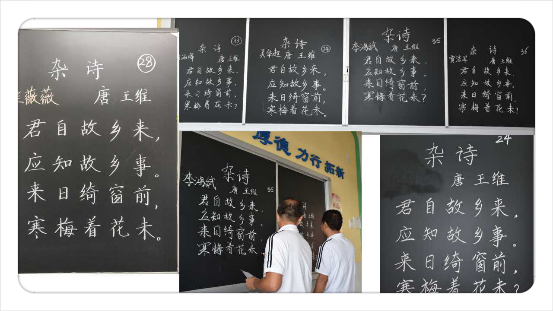 杂诗 28
薇薇 唐 王维
君自故乡来,
应知故乡事。
来日绮窗前,
寒梅着花未。
杂诗
唐 王维
君自故乡来,
应知故乡事。
来日绮窗前,
寒梅着花未。
杂诗
唐 王维
君自故乡来,
应知故乡事。
来日绮窗前,
寒梅着花未。
杂诗 35
唐 王维
君自故乡来,
应知故乡事。
来日绮窗前,
寒梅着花未?
杂诗
唐 王维
君自故乡来,
应知故乡事。
来日绮窗前,
寒梅着花未?
厚德 力行 拓新
杂诗
唐 王维 35
君自故乡来,
应知故乡事。
来日绮窗前,
寒梅着花未?
24
杂诗
唐 王维
君自故乡来,
应知故乡事。
来日绮窗前,
寒梅着花未。